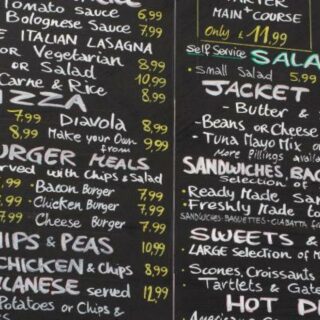 Tomato Sauce 6,99
Bolognese Sauce 7,99
E ITALIAN LASAGNA
OR Vegetarian 8,99
OR Salad 10,99
Carne & Rice 8,99
ZZA
7,99 Diavola 8,99
8,99 Make your Own from 9,99
URGER MEALS
rved with chips & Salad
Bacon Burger 7,99
7,99 Chicken Burger 7,99
7,99 Cheese Burger 7,99
HIPS & PEAS 10,99
CHICKEN & Chips 8,99
LANESE served 12,99
Potatoes or Chips &
MAIN + COURSE
Only £11,99
Self Service SALA
Small Salad 5,99
JACKET
- Butter &
- Beans or Cheese
- Tuna Mayo Mix or
More Fillings availa
SANDWICHES, BAG
Selection of
Ready Made San
Freshly Made to
SANDWICHES-BAGUETTES-CIABATTA
SWEETS &
LARGE Selection of M
Scones, Croissants
Tartlets & Gate
HOT D